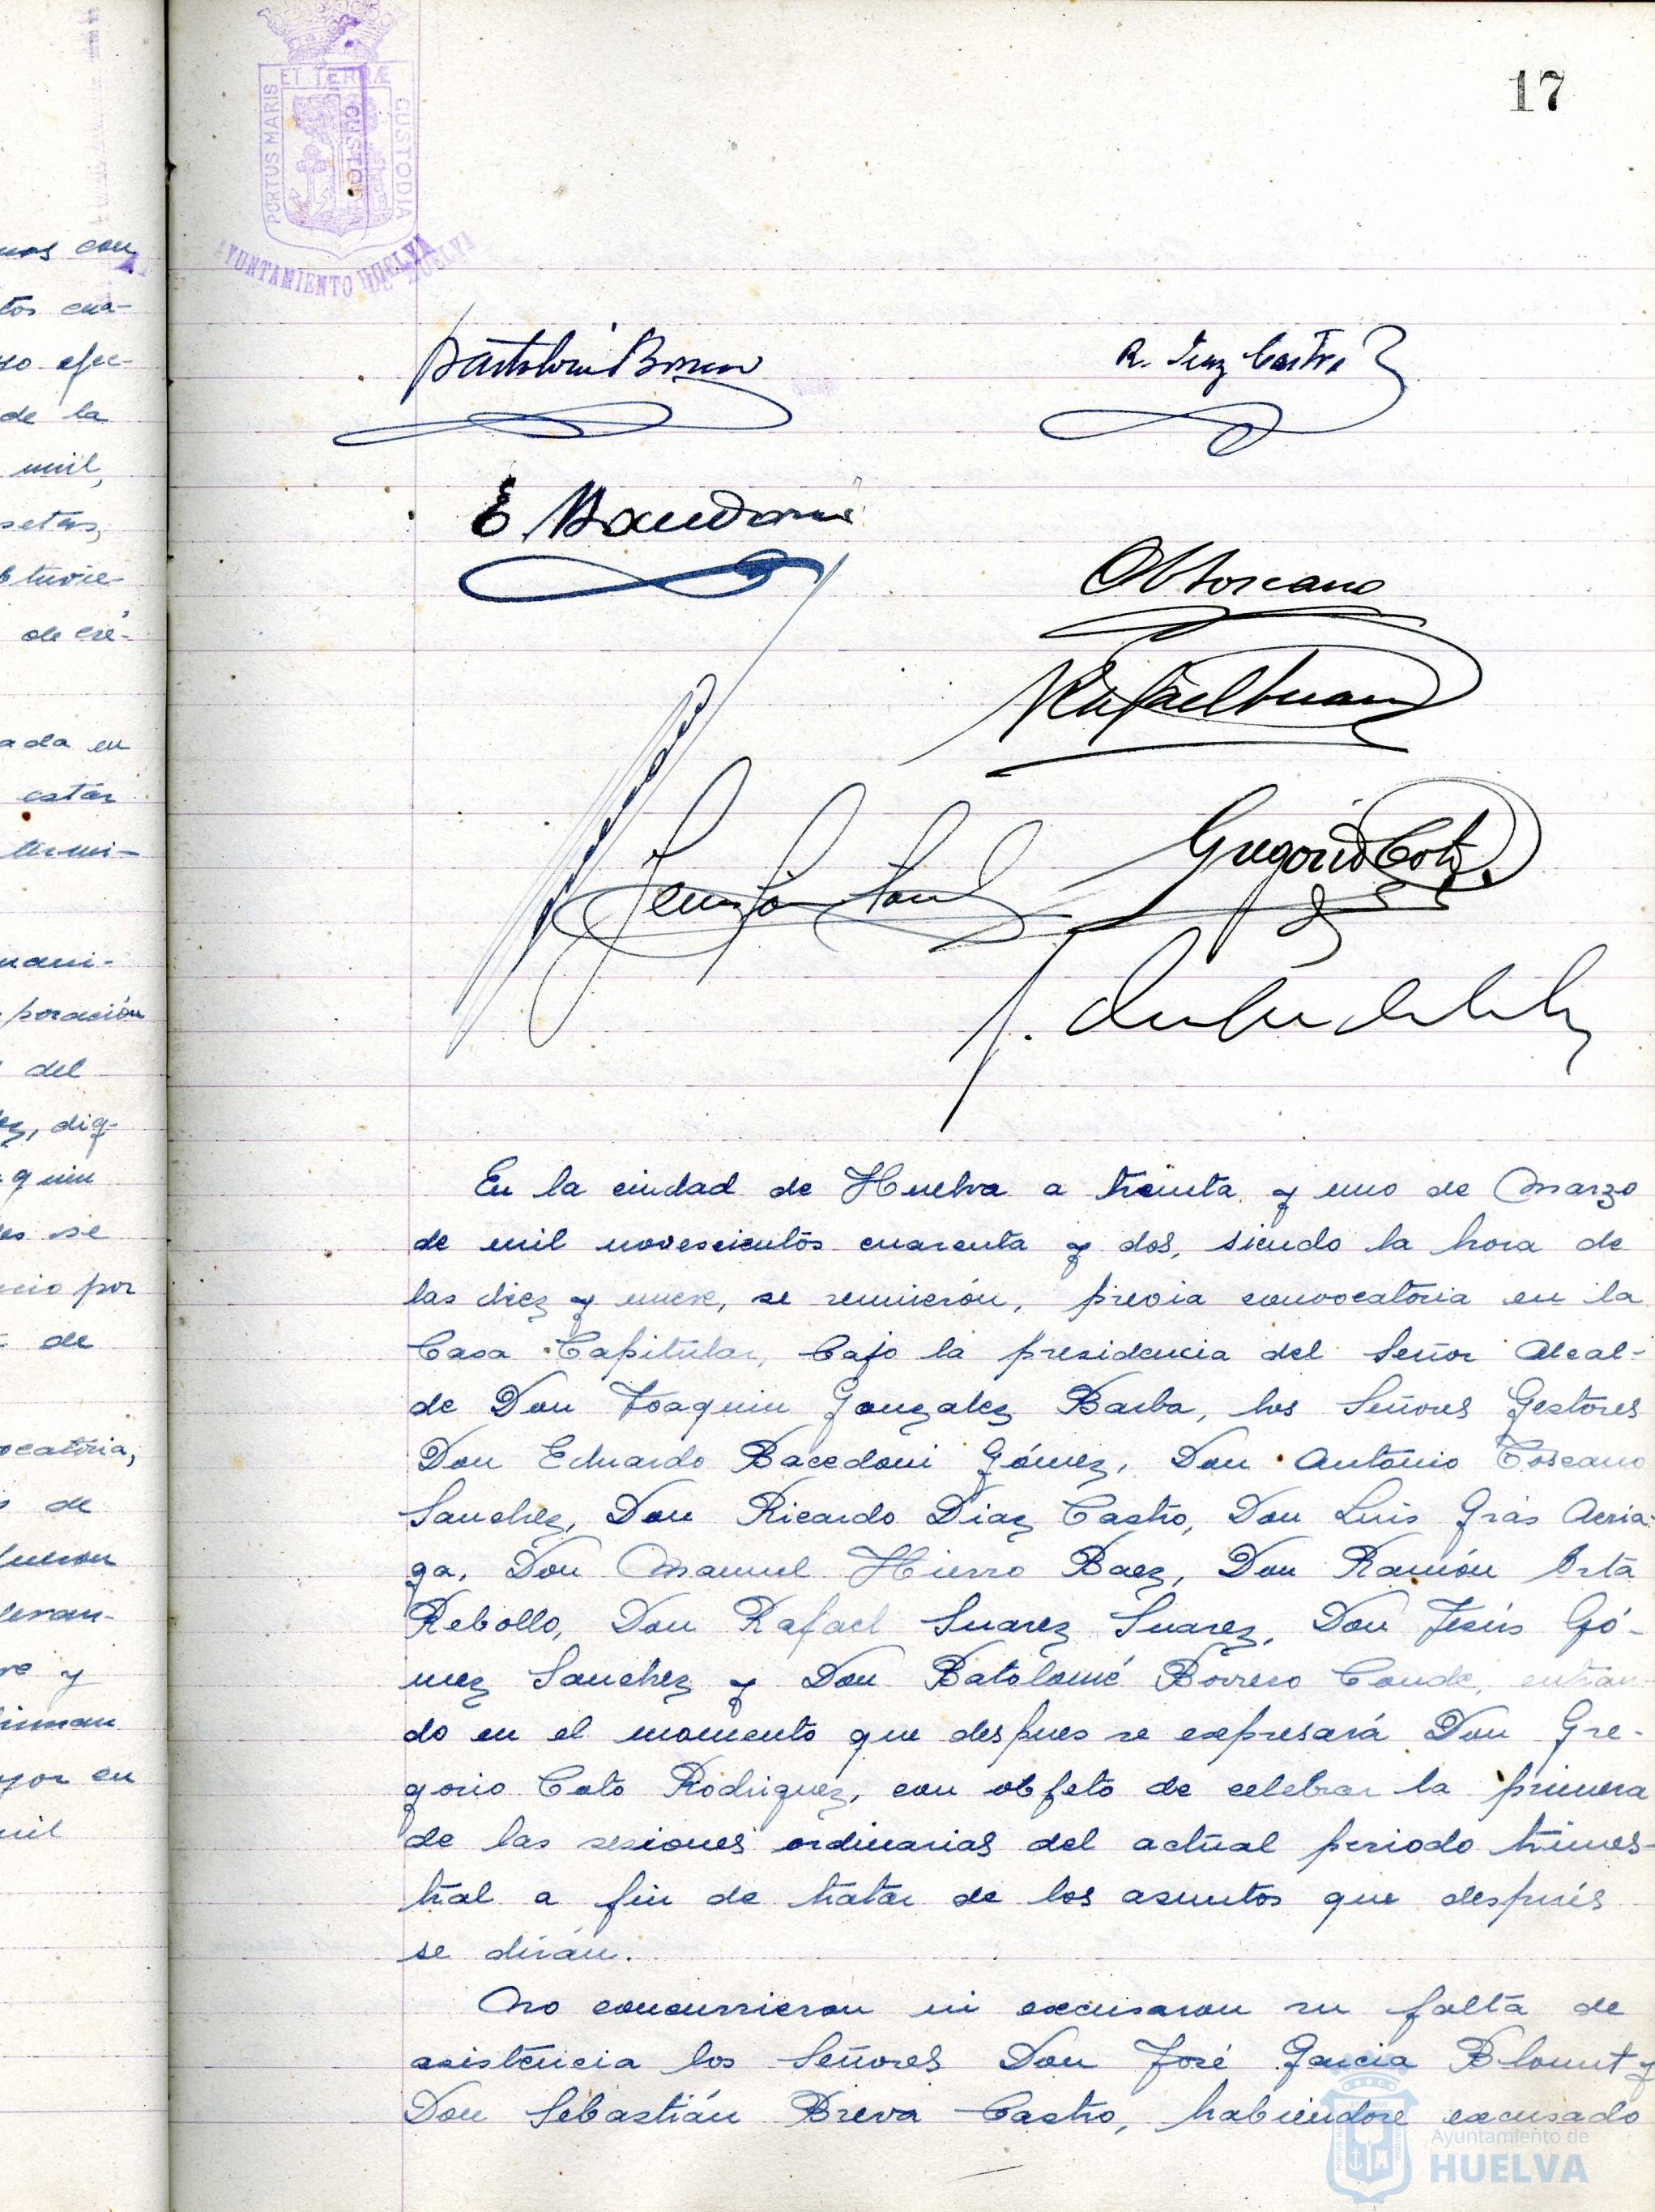 nos con
tos cua-
so efec-
de la
mil,
setas,
obtuvie-
de cré-
ada en
estar
termi-
mani-
poración
del
ez, dig-
quin
es se
cio por
de
ocatoria,
de
fueron
levan-
y
firman
yor en
mil
17
PORTUS MARIS ET TERRÆ CUSTODIA
AYUNTAMIENTO DE HUELVA
R. Diaz Castro
Gregorio Coto
En la ciudad de Huelva a treinta y uno de Marzo
de mil novescientos cuarenta y dos, siendo la hora de
las diez y nueve, se reunierón, previa convocatoria en la
Casa Capitular, bajo la presidencia del Señor Alcal-
de Don Joaquin Gonzalez Barba, los Señores Gestores
Don Eduardo Bacedoni Gómez, Don Antonio Toscano
Sanchez, Don Ricardo Diaz Castro, Don Luis Grás Arria-
ga, Don Manuel Hierro Baez, Don Ramón Orta
Rebollo, Don Rafael Suarez Suarez, Don Jesús Gó-
mez Sanchez y Don Batolomé Borrero Conde, entran-
do en el momento que despues se expresará Don Gre-
gorio Coto Rodriguez, con objeto de celebrar la primera
de las sesiones ordinarias del actual periodo trimes-
tral a fin de tratar de los asuntos que después
se dirán.
No concurrieron ni excusaron su falta de
asistencia los Señores Don José Garcia Blount y
Don Sebastián Breva Castro, habiendose excusado
Ayuntamiento de
HUELVA